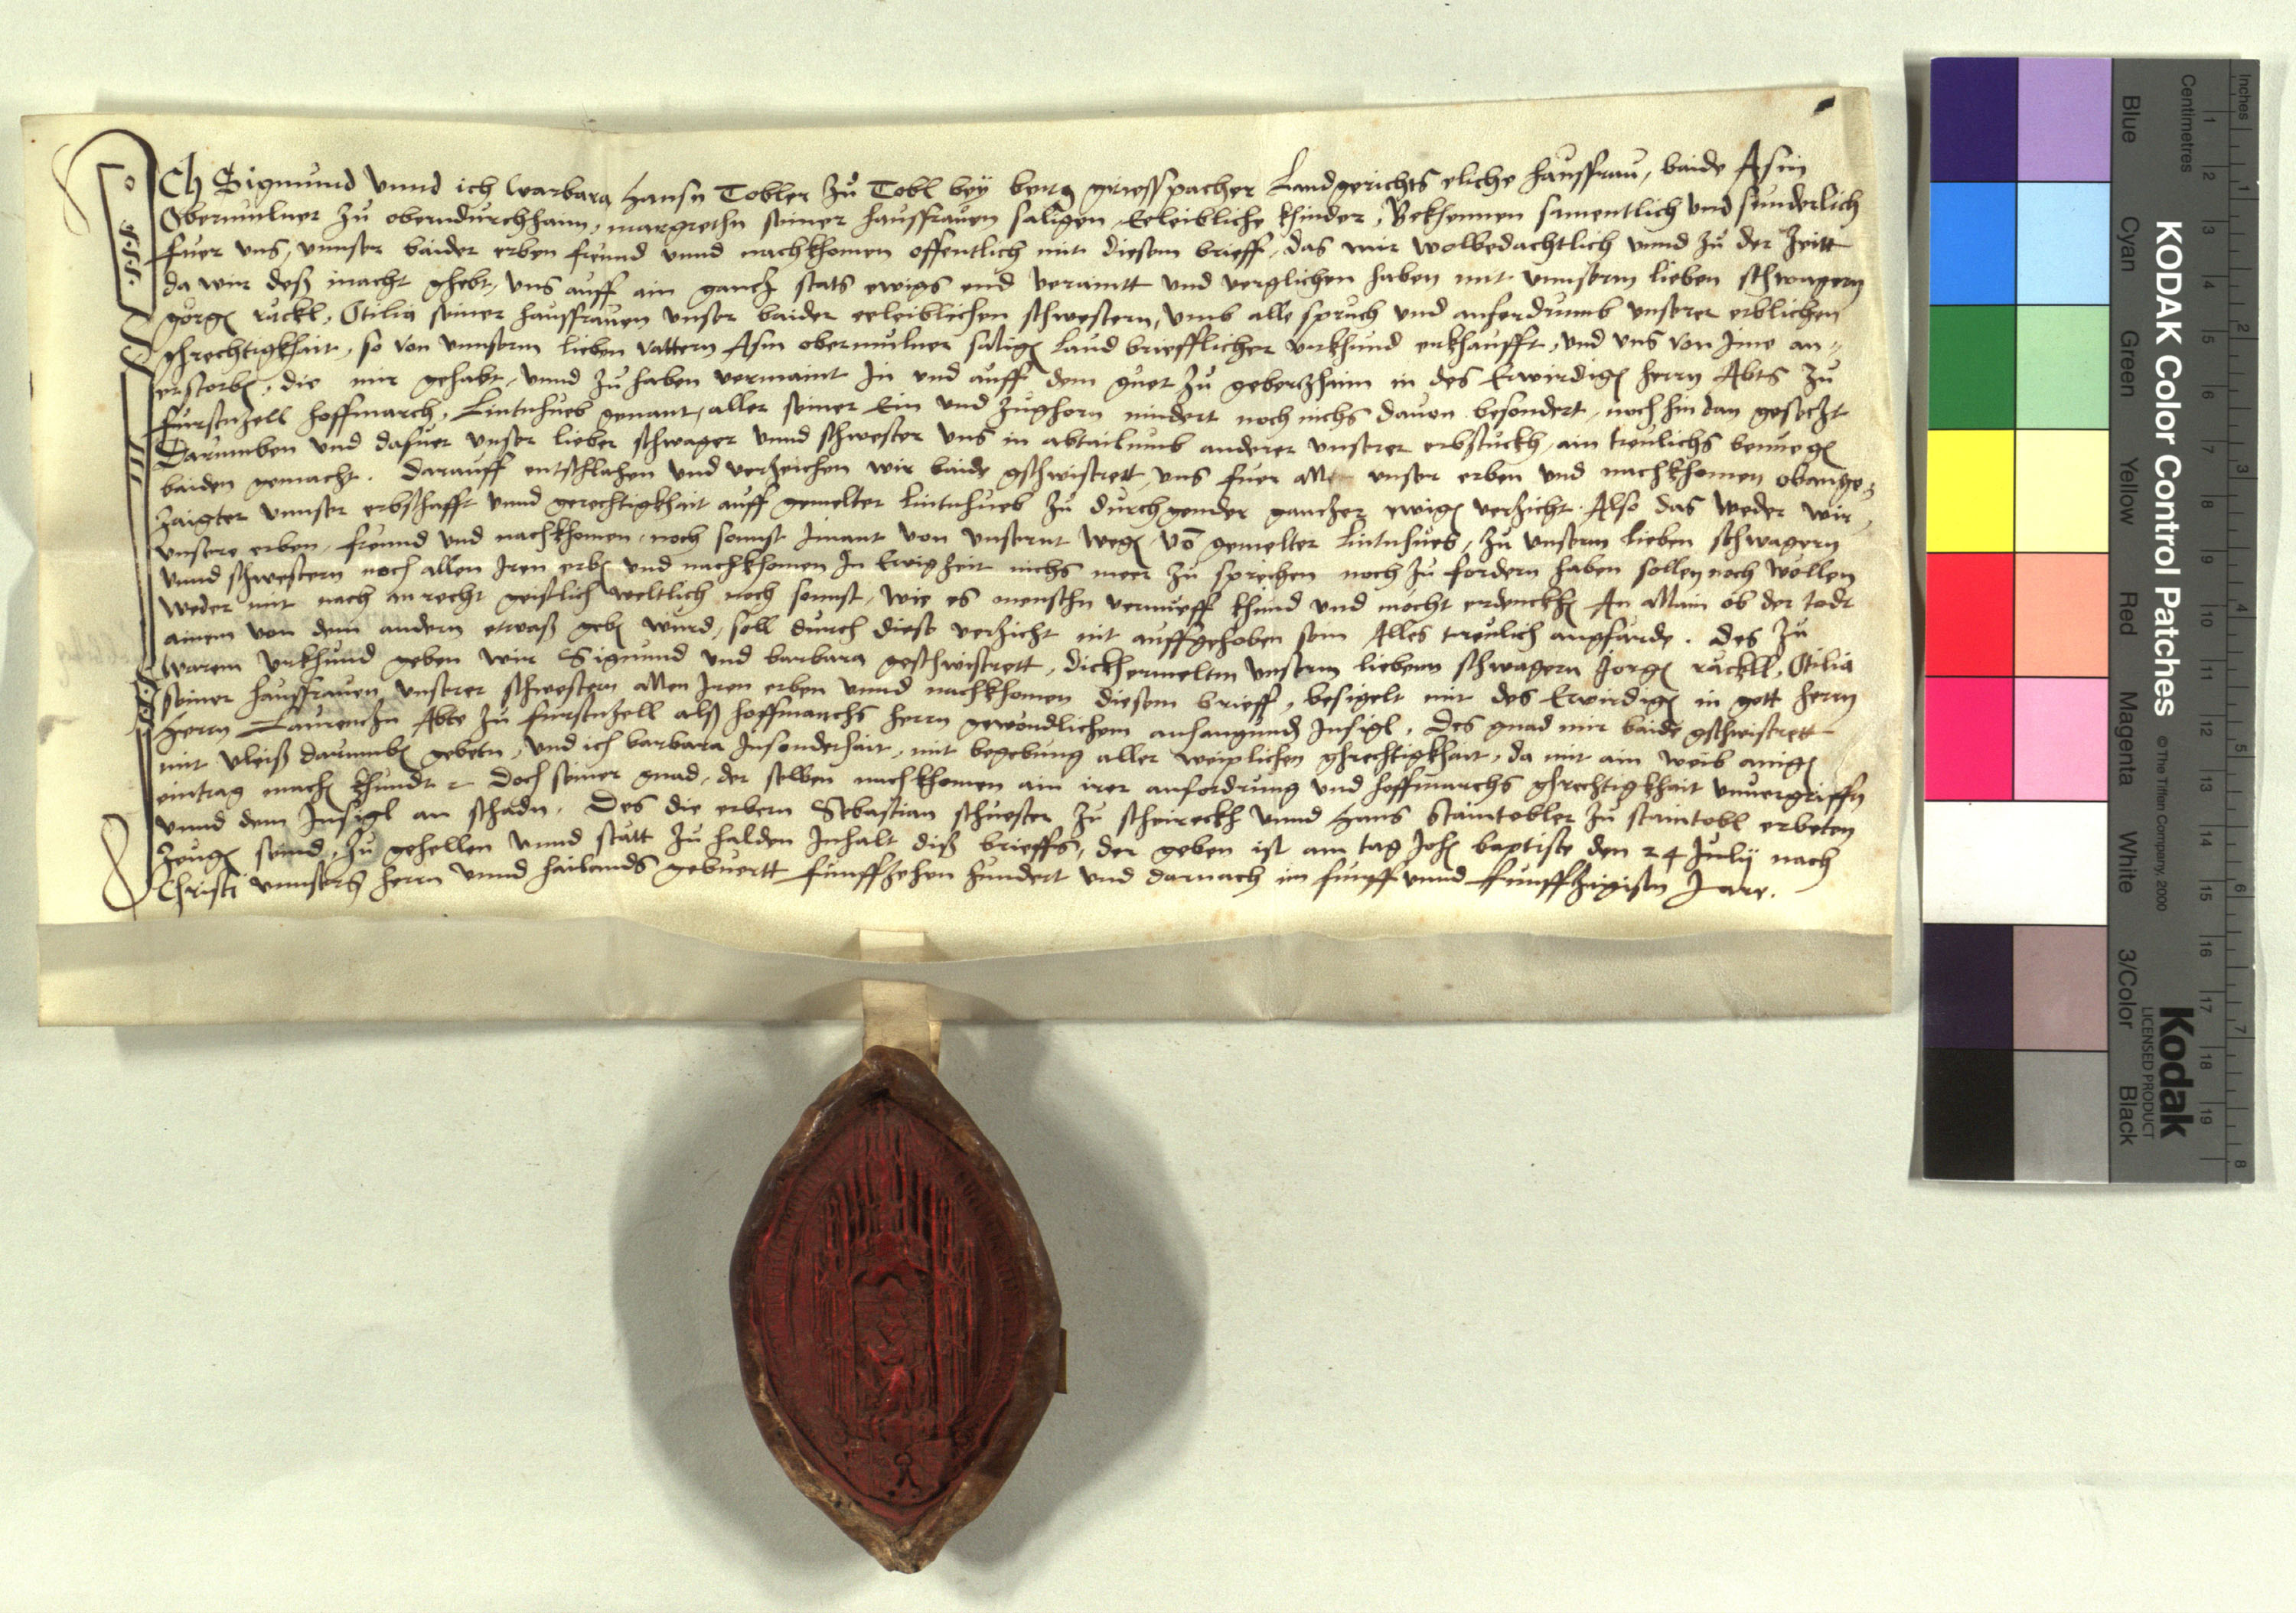 ICh Sigmund vnnd ich Warbara Hansn Tobler zů Tobl bey berg griesspacher Landgerichts eliche haussfrau, baide Asm
Obermulner zů oberndurchhann, margrethn seiner haussfrauen saligen Eeleibliche khinder, Bekhennen samentlich vnd sunderlich
fuer vns, vnnser baider erben freund vnnd nachkhomen offentlich mit diesem brieff, das wir wolbedachtlich vnnd zů der Zeitt
da wir deß macht ghebt, vns auff ain gancz stats ewigs end veraintt vnd verglichen haben mit vnnserm lieben schwagern
görgn räckl, Otilia seiner haussfrauen vnser baider eeleiblichen schwestern, vmb alle spruch vnd anfordrumb vnserer erblichen
ghrechtigkhait, so von vnnserm lieben vattern Asm obermulner salign laud briefflicher vrkhund erkhaufft, vnd vns von Jme an-
erstorbn, die wir gehabt, vnnd zů haben vermaint Jn vnd auff dem guet zů geberzhaim in des Erwirdign herrn Abts zů
furstnzell hoffmarch, Lintnhueb genant, aller seiner Ein vnd zughorn nindert noch nichs dauon besondert, noch hindan geseczt
Darumben vnd dafuer vnser lieber schwager vnnd schwester vns in abtailumb anderer vnserer erbstuckh, ain treulichs benuegn
baiden gemacht. Darauff entschlahen vnd verzeichen wir baide gschwistrett, vns fuer alle vnser erben vnd nachkhomen obange-
zaigter vnnser erbschafft vnnd gerechtigkhait auff gemelter Lintnhueb zů durchgender ganczer ewign verzicht. Also das weder wir,
vnsere erben, freund vnd nachkhomen, noch sonnst Jmant von vnsernt wegn, võ gemelter Lintnhueb, zů vnserm lieben schwagern
vnnd schwestern noch allen Jren erbn vnd nachkhomen Jn Ewig Zeit nichs meer zů sprechen noch zů fordern haben sollen noch wollen
weder mit nach an recht geistlich weltlich noch sonnst, wie es menschn vernueff khund vnd mocht erdenckhn An Allain ob der todt
ainem von dem andern etwaß gebn wurd, soll durch diese verzicht nit auffgehoben sein Alles treulich angfärde. Des zů
warem vrkhund geben wir Sigmund vnd barbara geschwistrett, dickhermeltm vnserm liebenn schwagern Jorgn räckll, Otilia
seiner haussfrauen vnserer schwestern allen Jren erben vnnd nachkhomen diesem brieff, besigelt mit des Erwirdign in gott herrn
Herrn Laurenczn Abte zů furstnzell alß hoffmarchs herrn gewondlichem anhangundn Jnsigl. Des gnad wir baide gschwistrett
mit vleiß darumbn gebetn, vnd ich barbara Jnsonderhait, mit begebung aller weiplichen ghrechtigkhait, da mit ain weib ainign
eintrag machn khundt Doch seiner gnad, der selben nachkhomen ain irer anfordrung vnd hoffmarchs ghrechtigkhait vnuergriffn
vnnd dem Jnsigl an schadn. Des die erbern Sebastian schuester zů scheireckh vnnd Hans Staintobler zů staintobl erbeten
Zeugn seind, zů gehellen vnnd statt zů halden Jnhalt diß brieffs, der geben ist am tag Johñ baptiste den 24 Julij nach
Christi vnnsers herrn vnnd hailands gebuertt funffzehen hundert vnd darnach im funff vnnd funffzigistn Jare.
KODAK Color Control Patches
© The Tiffen Company, 2000
Kodak
LICENSED PRODUCT
Blue Cyan Green Yellow Red Magenta White 3/Color Black
Inches
1 2 3 4 5 6 7 8
Centimetres
1 2 3 4 5 6 7 8 9 10 11 12 13 14 15 16 17 18 19